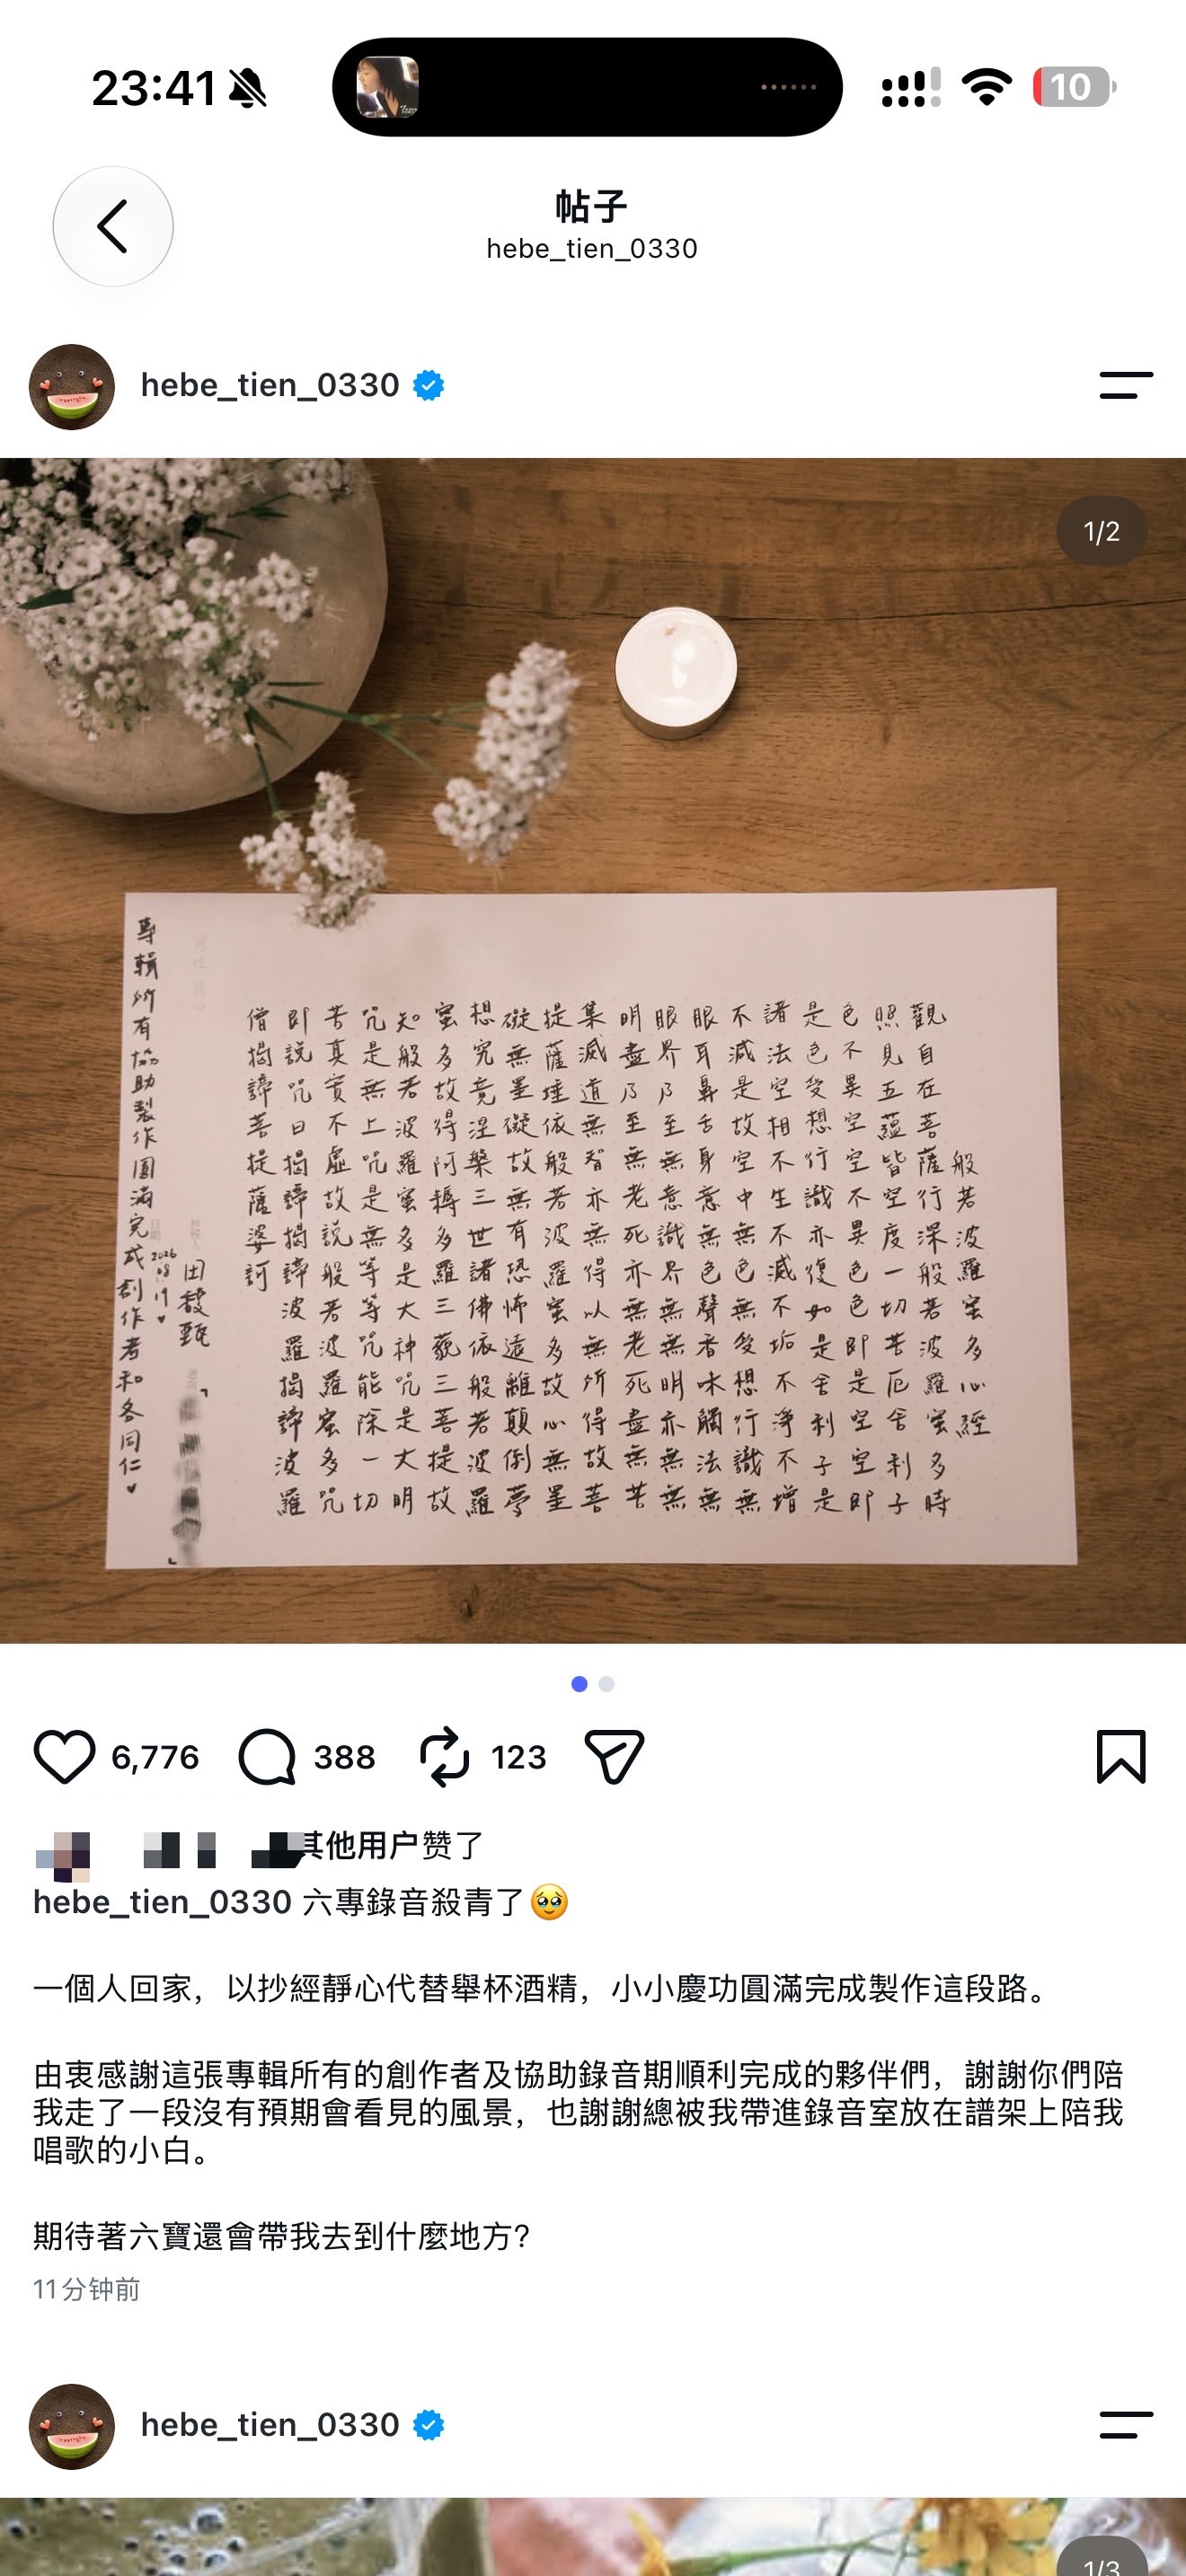 23:41
10
帖子
hebe_tien_0330
hebe_tien_0330
1/2
般若波羅蜜多心經
觀自在菩薩行深般若波羅蜜多時
照見五蘊皆空度一切苦厄舍利子
色不異空空不異色色即是空空即
是色受想行識亦復如是舍利子是
諸法空相不生不滅不垢不淨不增
不減是故空中無色無受想行識無
眼耳鼻舌身意無色聲香味觸法無
眼界乃至無意識界無無明亦無無
明盡乃至無老死亦無老死盡無苦
集滅道無智亦無得以無所得故菩
提薩埵依般若波羅蜜多故心無罣
礙無罣礙故無有恐怖遠離顛倒夢
想究竟涅槃三世諸佛依般若波羅
蜜多故得阿耨多羅三藐三菩提故
知般若波羅蜜多是大神咒是大明
咒是無上咒是無等等咒能除一切
苦真實不虛故說般若波羅蜜多咒
即說咒曰揭諦揭諦波羅揭諦波羅
僧揭諦菩提薩婆訶
田馥甄
2026
專輯所有協助製作圓滿完成創作者和各同仁♥
6,776
388
123
其他用户赞了
hebe_tien_0330 六專錄音殺青了🥹
一個人回家，以抄經靜心代替舉杯酒精，小小慶功圓滿完成製作這段路。
由衷感謝這張專輯所有的創作者及協助錄音期順利完成的夥伴們，謝謝你們陪
我走了一段沒有預期會看見的風景，也謝謝總被我帶進錄音室放在譜架上陪我
唱歌的小白。
期待著六寶還會帶我去到什麼地方?
11分钟前
hebe_tien_0330
1/3